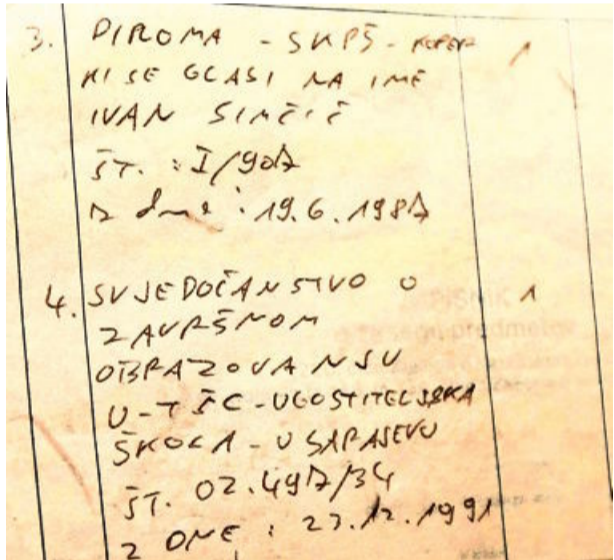 3. DIPLOMA - SKPŠ - KOPER 1
KI SE GLASI NA IME
IVAN SIMČIČ
ŠT. : I/907
z dne : 19.6.1987
4. SVJEDOČANSTVO O 1
ZAVRŠNOM
OBRAZOVANJU
U - TŠC - UGOSTITELJSKA
ŠKOLA - U SARAJEVU
ŠT. 02.497/34
Z DNE : 23.12.1991